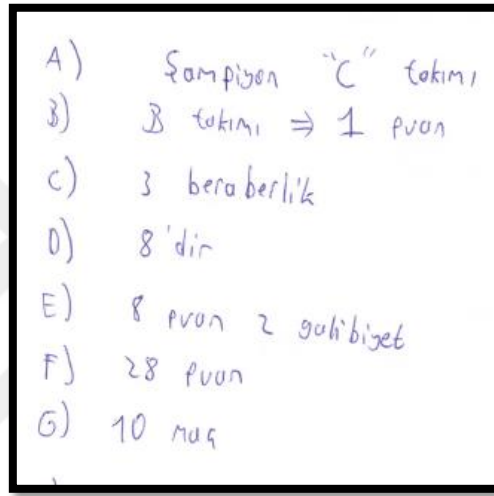 A) Şampiyon "C" takımı
B) B takımı ⇒ 1 puan
C) 3 beraberlik
D) 8'dir
E) 8 puan 2 galibiyet
F) 28 puan
G) 10 maç